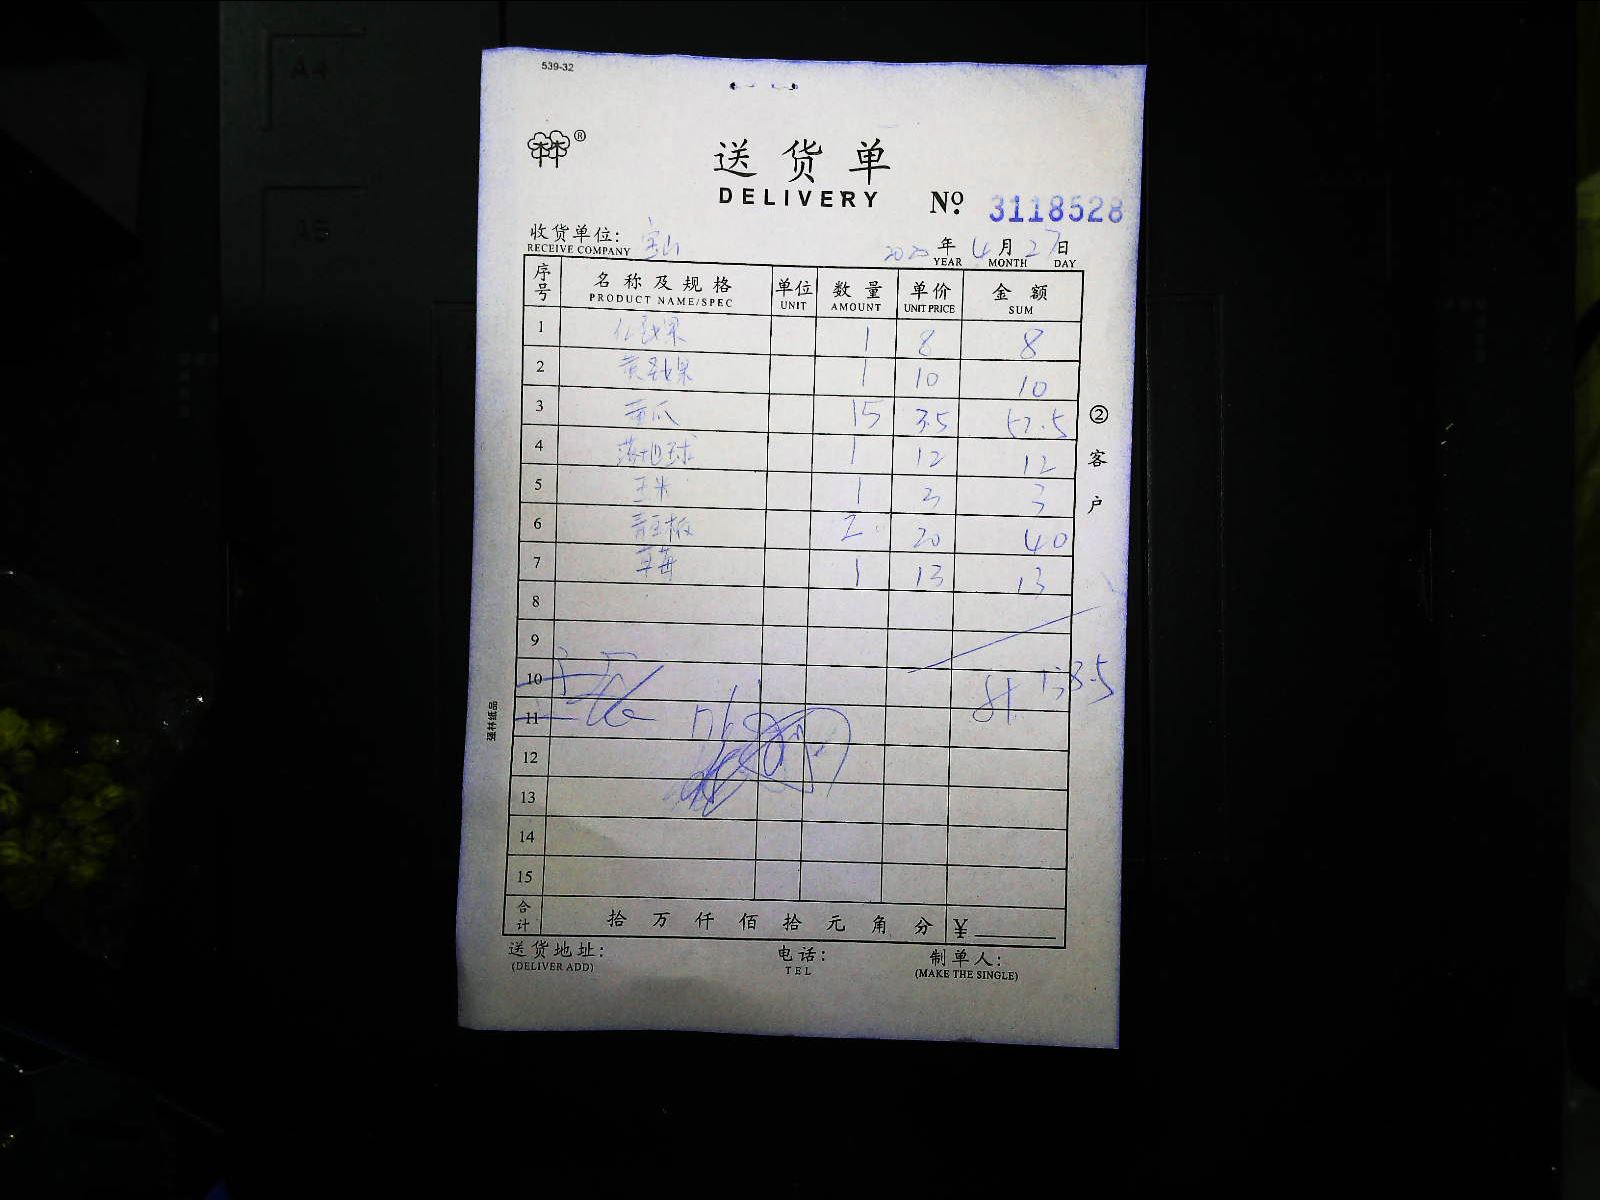 539-32
®
送货单
DELIVERY
№ 3118528
收货单位: 宝山
RECEIVE COMPANY
2020年4月27日
YEAR MONTH DAY
序号 名称及规格 单位 数量 单价 金额
PRODUCT NAME/SPEC UNIT AMOUNT UNIT PRICE SUM
1 1 8 8
2 1 10 10
3 黄瓜 15 3.5 52.5
4 落地球 1 12 12
5 玉米 1 3 3
6 青豆板 2 20 40
7 草莓 1 13 13
8
9
10 138.5
11
12
13
14
15
合计 拾 万 仟 佰 拾 元 角 分 ¥
送货地址: 电话: 制单人:
(DELIVER ADD) TEL (MAKE THE SINGLE)
②客户
强林纸品